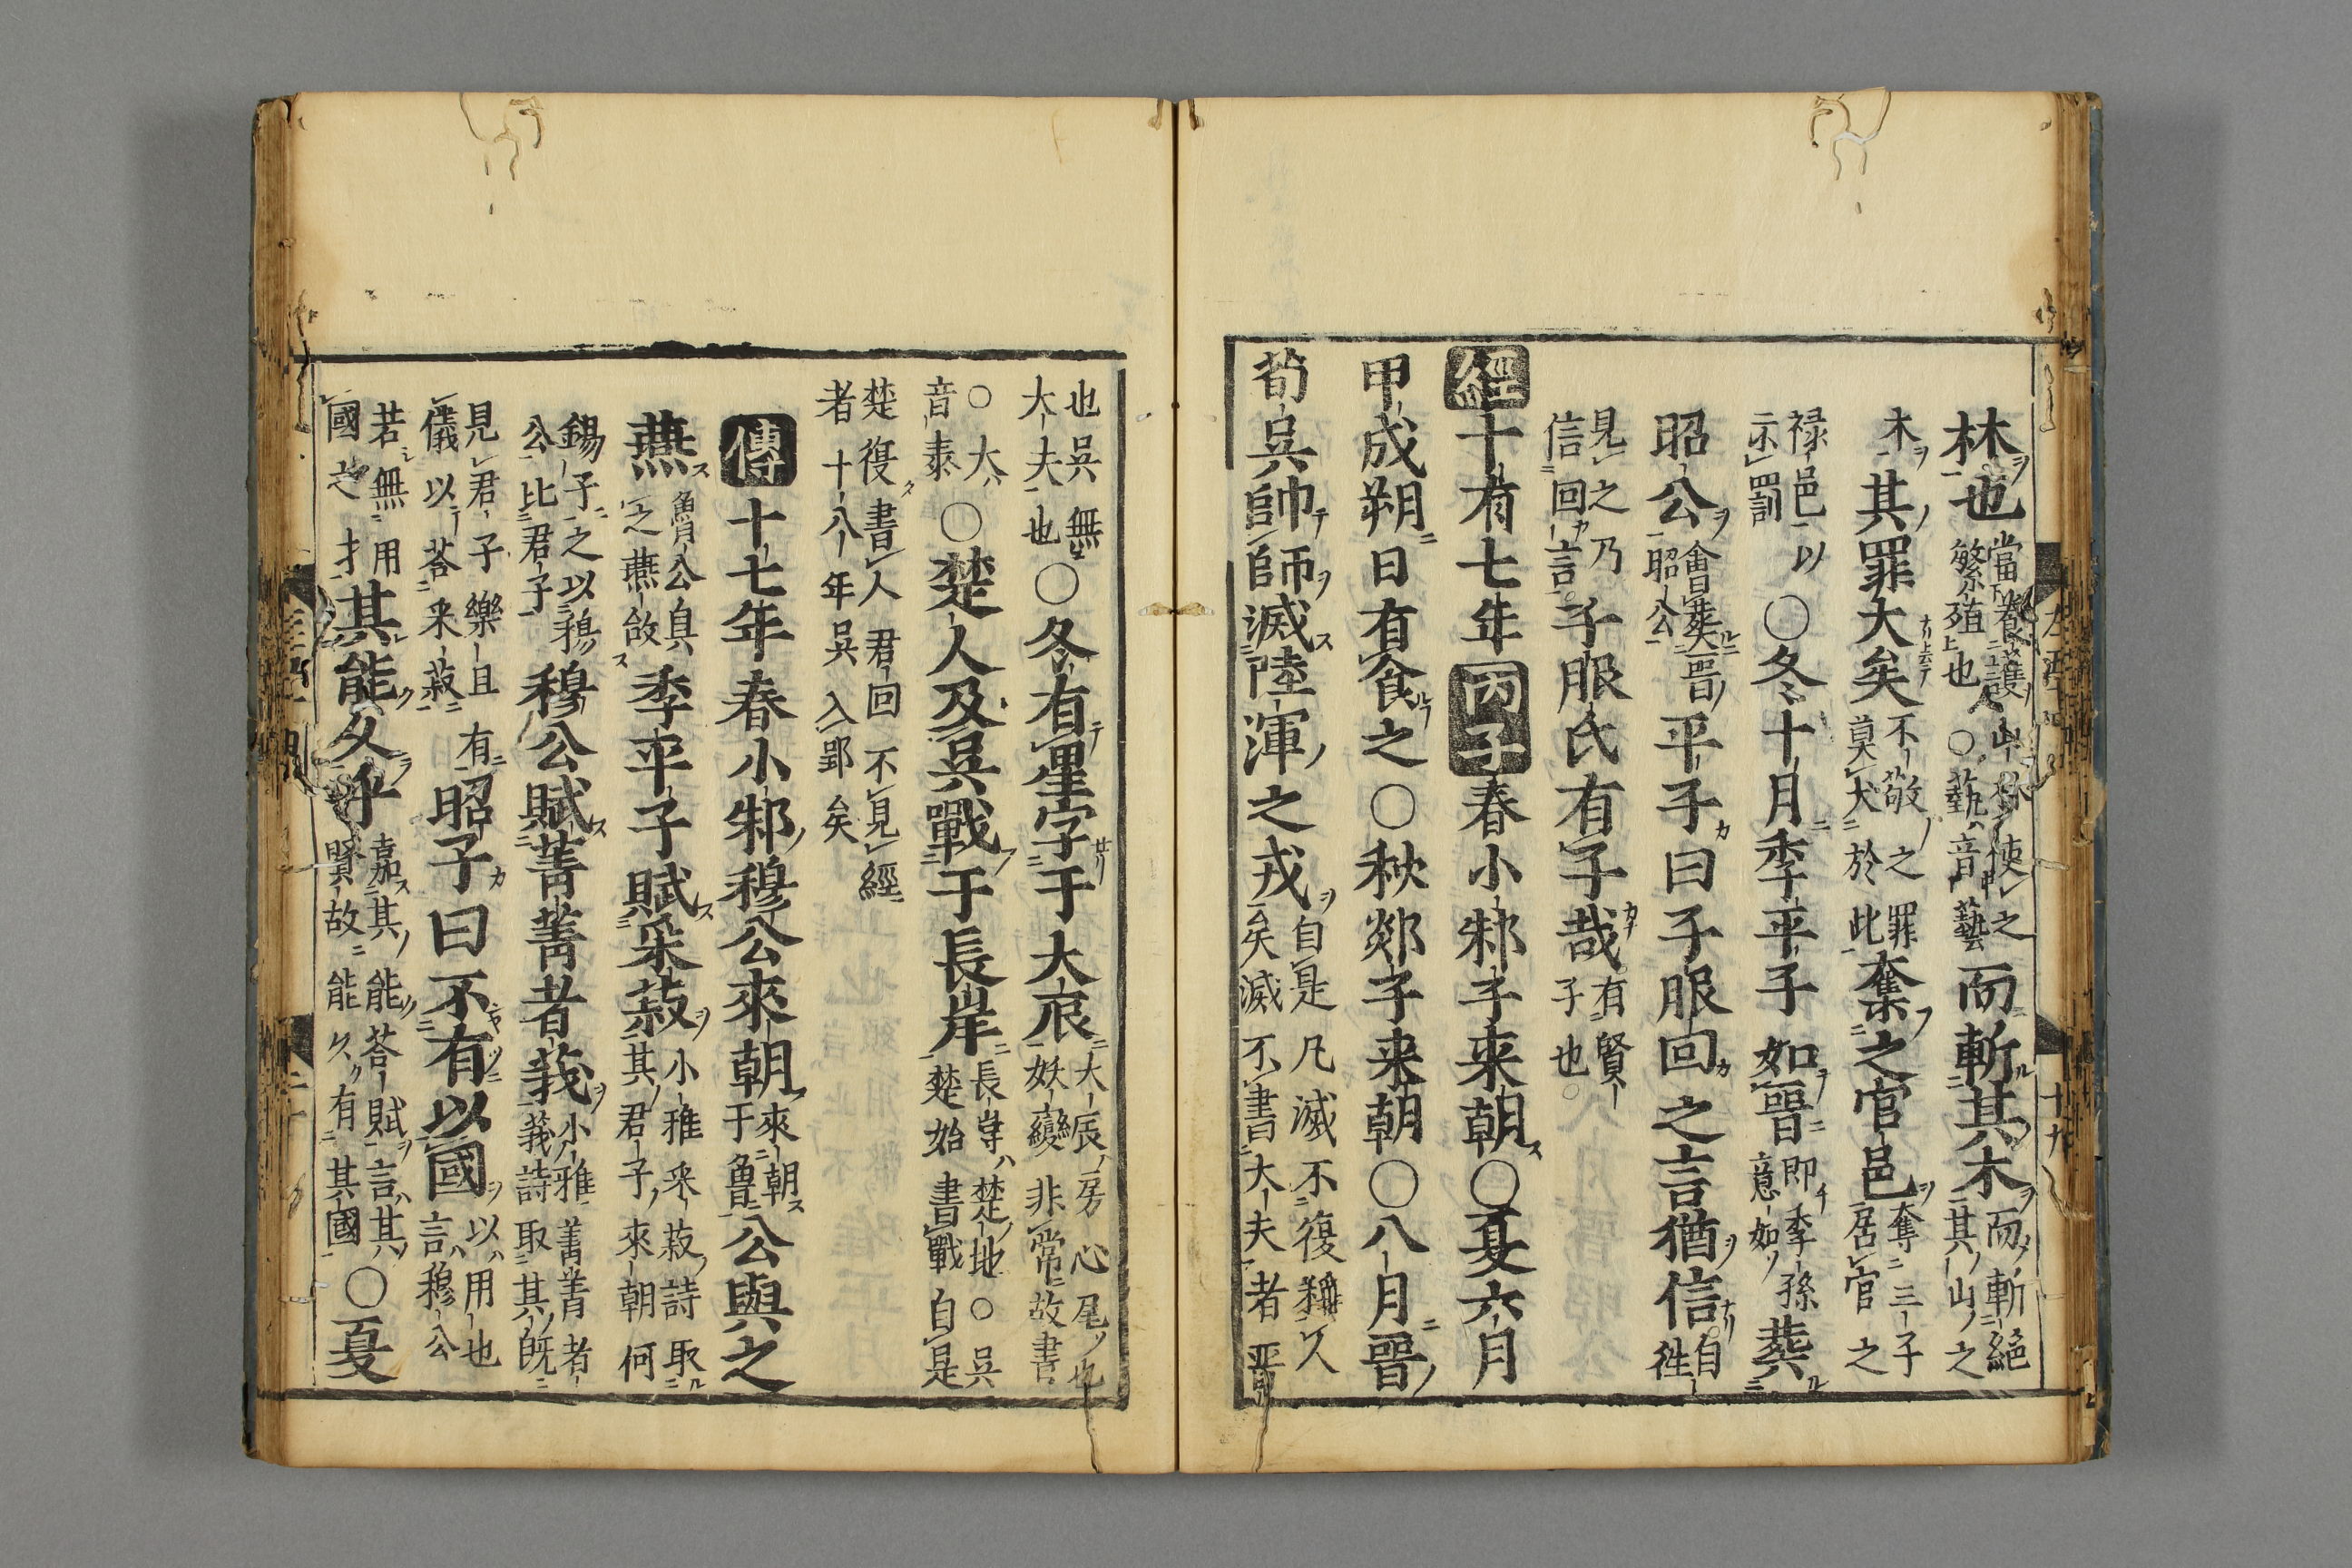 林也當養護山林使之繁殖也○蓺音藝而斬其木而斬絕其山之
木其罪大矣不敬之罪莫大於此奪之官邑奪三子居官之
禄邑以示罰○冬十月季平子如晉即季孫意如葬
昭公會葬晉昭公平子曰子服回之言猶信自徃
見之乃信回言子服氏有子哉有賢子也
經十有七年丙子春小邾子来朝○夏六月
甲戌朔日有食之○秋郯子来朝○八月晉
荀吳帥師滅陸渾之戎自是凡滅不復稱人矣滅不書大夫者晋
也吳無大夫也○冬有星孛于大辰大辰房心尾也妖變非常故書
○大音泰○楚人及吳戰于長岸長岸楚地○吳楚始書戰自是
楚復書人君回不見經者十八年吳入郢矣
傳十七年春小邾穆公來朝來朝于魯公與之
燕魯公與之燕飲季平子賦采菽小雅采菽詩取其君子來朝何
錫子之以錫公比君子穆公賦菁菁者莪小雅菁菁者莪詩取其既
見君子樂且有儀以荅采菽昭子曰不有以國以用也言穆公
若無用國之才其能久乎嘉其能荅賦言其賢故能久有其國○夏
十九